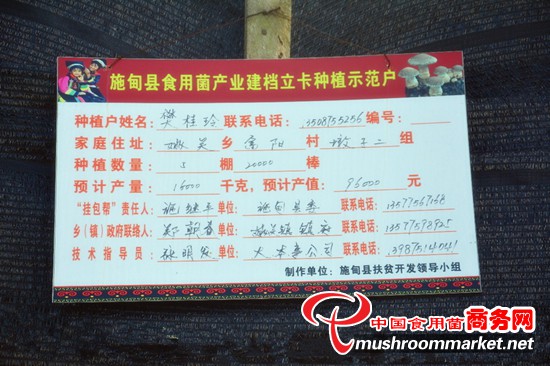 施甸县食用菌产业建档立卡种植示范户
种植户姓名：樊桂玲 联系电话：13508755256 编号：
家庭住址： 乡 阳 村 组
种植数量：5 棚 20000 棒
预计产量：16000 千克，预计产值：96000 元
“挂包帮”责任人：施继平 单位：施甸县委 联系电话：13577567168
乡（镇）政府联络人：郑 单位： 联系电话：13577598925
技术指导员：张明发 单位：大 公司 联系电话：13987514041
制作单位：施甸县扶贫开发领导小组
中国食用菌商务网
mushroommarket.net